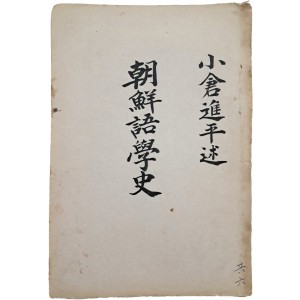 小倉進平述
朝鮮語學史
共六